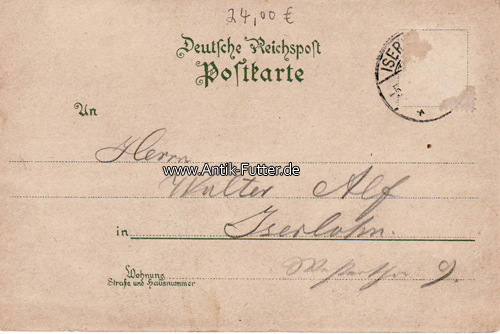 24,00 €
Deutsche Reichspost
Postkarte
ISER
An
Herrn
www.Antik-Futter.de
Walter Alf
in Iserlohn.
9.
Wohnung
Straße und Hausnummer